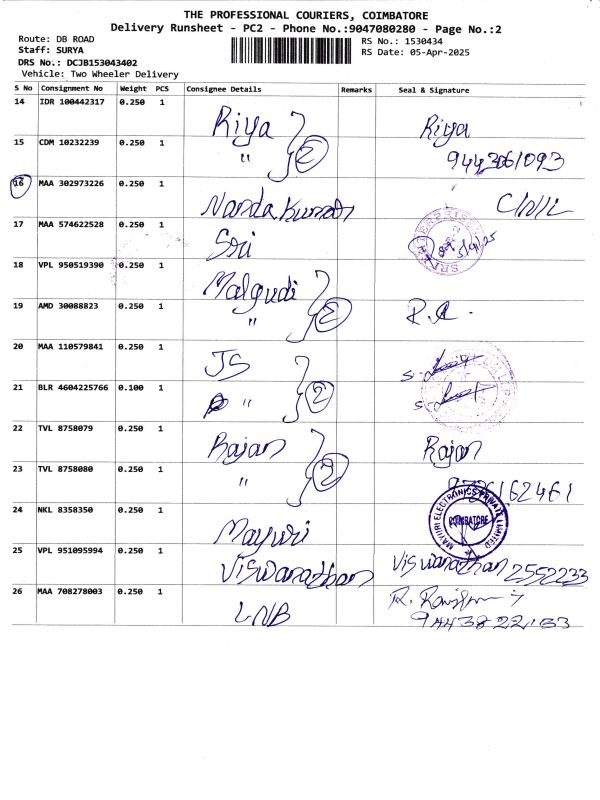 THE PROFESSIONAL COURIERS, COIMBATORE
Delivery Runsheet - PC2 - Phone No.:9047080280 - Page No.:2
Route: DB ROAD
Staff: SURYA
DRS No.: DCJB153043402
Vehicle: Two Wheeler Delivery
RS No.: 1530434
RS Date: 05-Apr-2025
S No Consignment No Weight PCS Consignee Details Remarks Seal & Signature
14 IDR 100442317 0.250 1 Riya Riya
15 CDM 10232239 0.250 1 " 2 9443061093
16 MAA 302973226 0.250 1 Nanda Kumar
17 MAA 574622528 0.250 1 Sri 5/4/25
18 VPL 950519390 0.250 1 Malgudi
19 AMD 30088823 0.250 1 " 2
20 MAA 110579841 0.250 1 JS
21 BLR 4604225766 0.100 1 " 2
22 TVL 8758079 0.250 1 Rajan Rajan
23 TVL 8758080 0.250 1 " 2
24 NKL 8358350 0.250 1 Mayuri MAYURI ELECTRONICS PRIVATE LIMITED COIMBATORE
25 VPL 951095994 0.250 1 Viswanathan Viswanathan 2552233
26 MAA 708278003 0.250 1 LNB